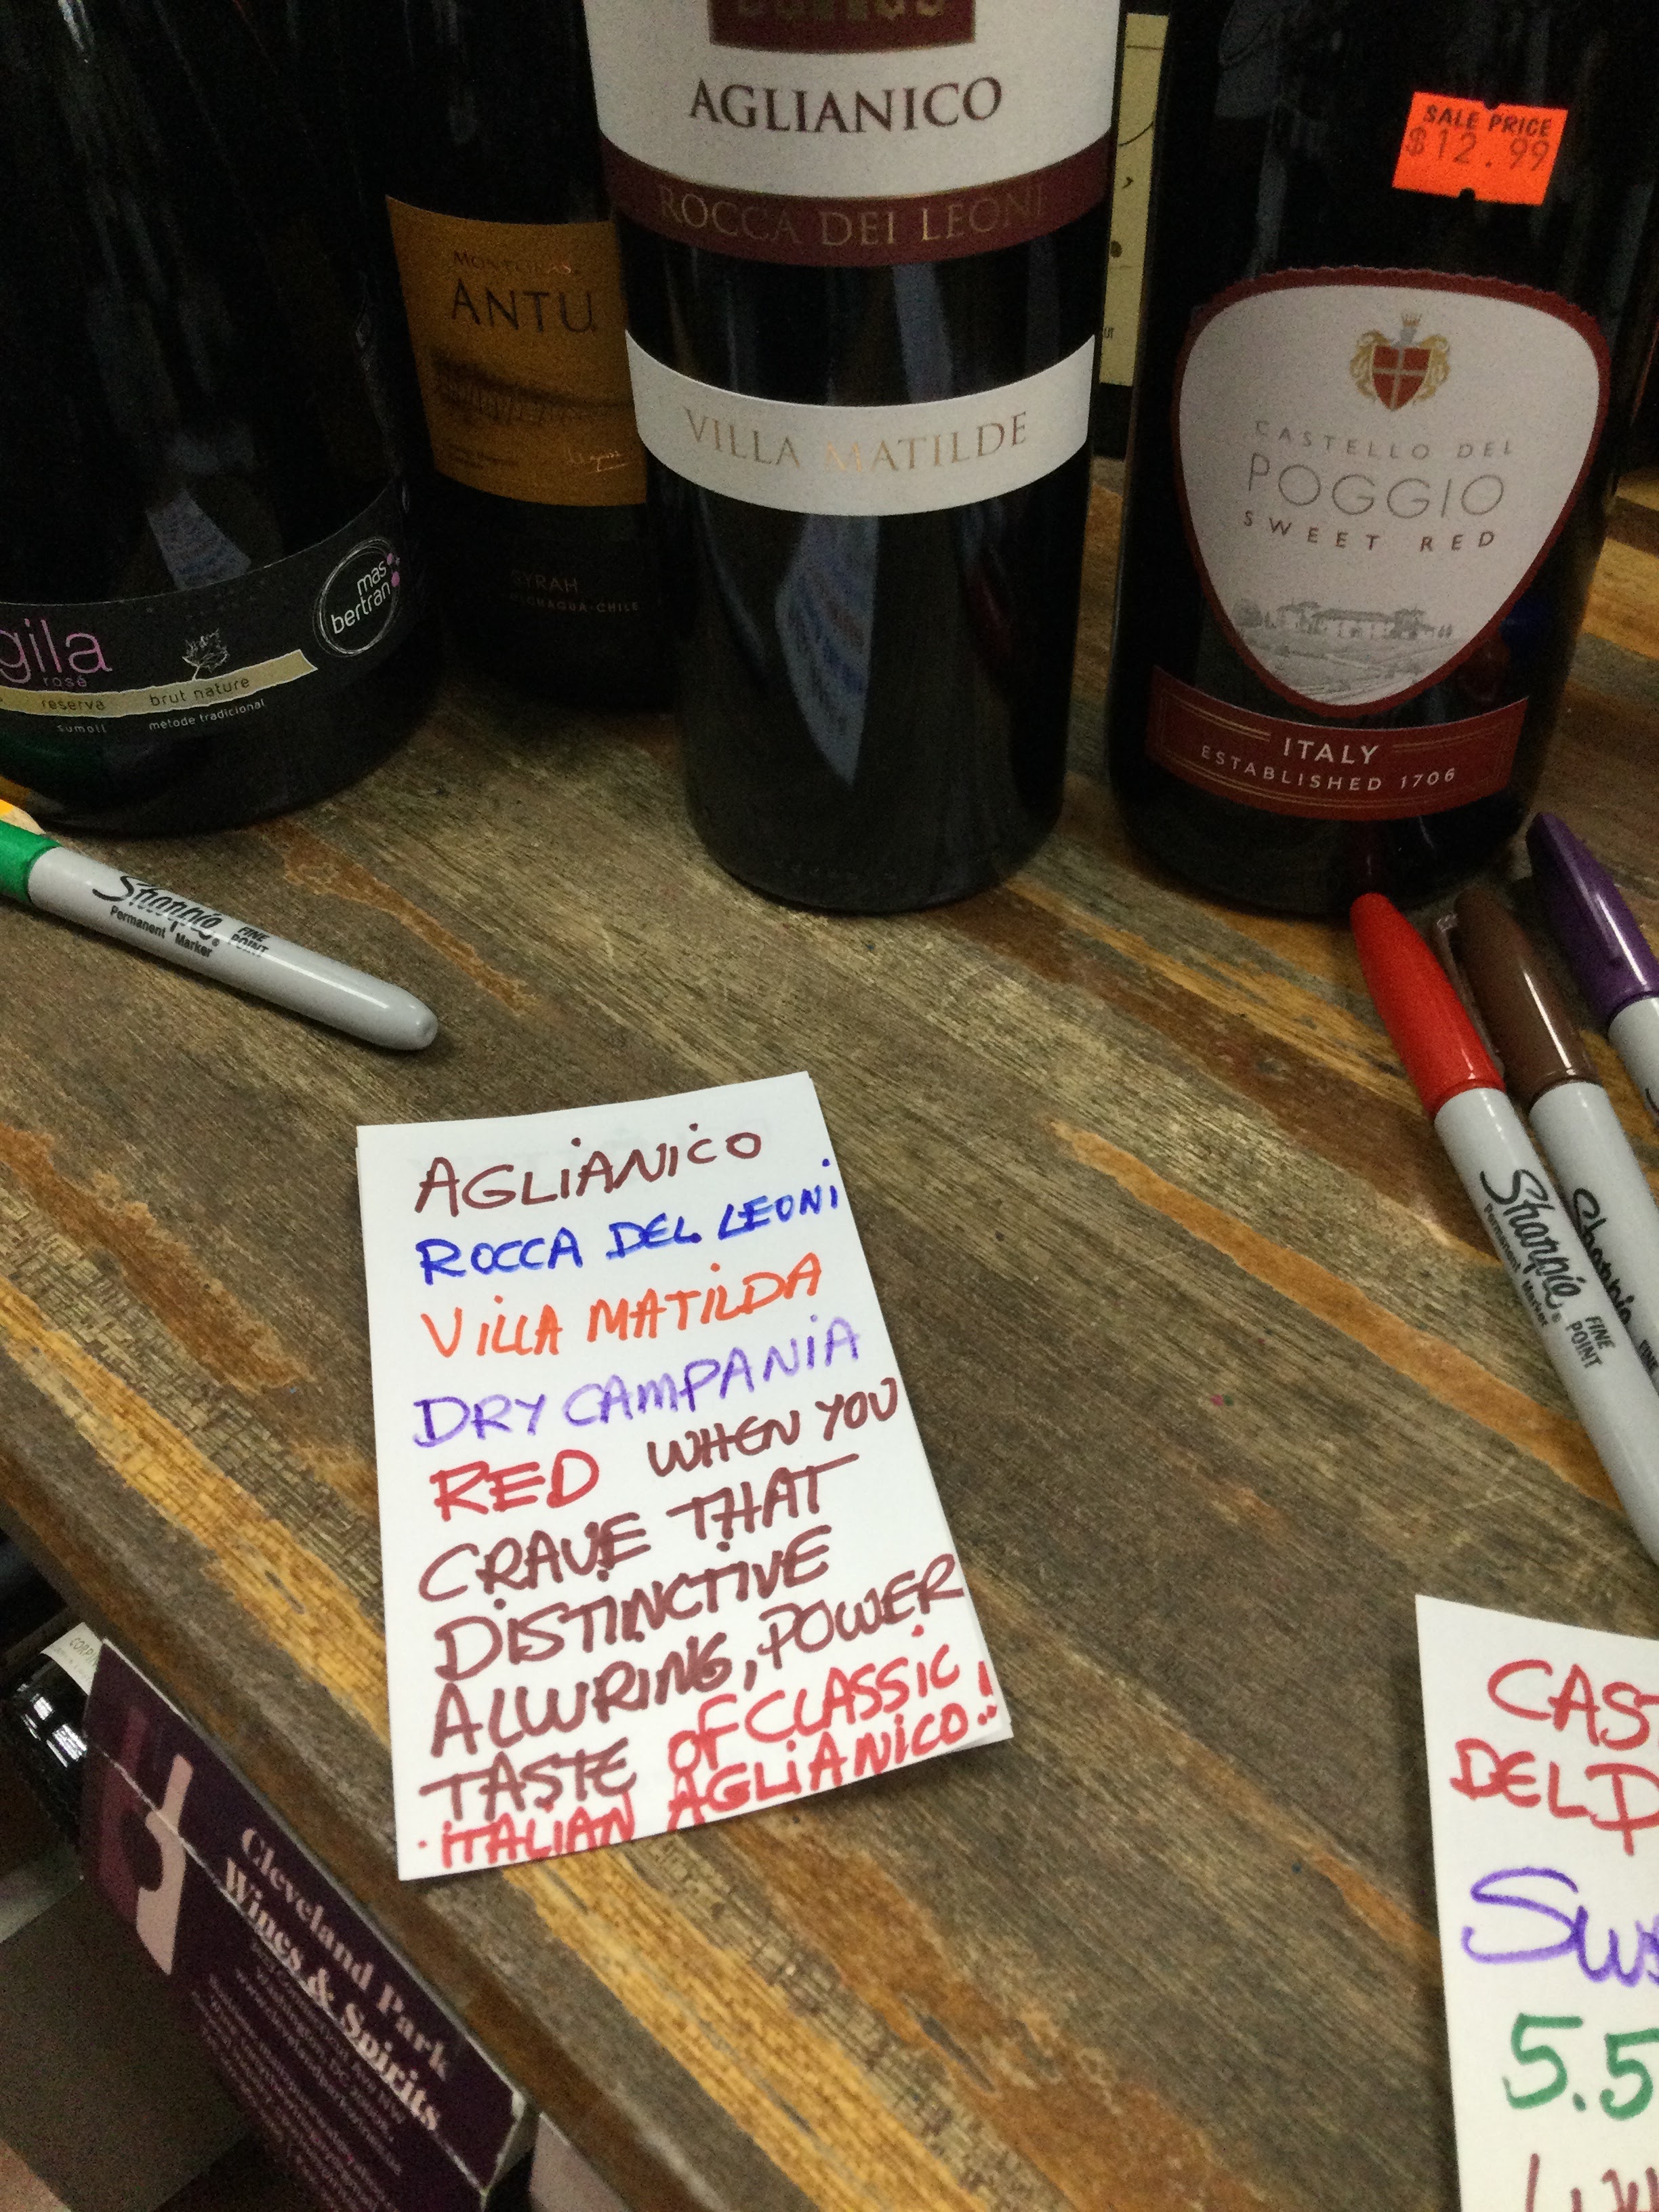 AGLIANICO
ROCCA DEI LEONI
VILLA MATILDE
SALE PRICE
$12.99
CASTELLO DEL
POGGIO
SWEET RED
ITALY
ESTABLISHED 1706
ANTU
SYRAH
mas
bertran
gila
rosé
reserva
brut nature
sumoll
metode tradicional
Sharpie
FINE
POINT
Permanent Marker
Sharpie
FINE
POINT
Permanent Marker
Sharpie
AGLiANiCO
ROCCA DEL LEONi
ViLLA MATiLDA
DRY CAMPANiA
RED WHEN YOU
CRAVE THAT
DiSTINCTIVE
ALLURING, POWER
TASTE OF CLASSiC
iTALiAN AGLiANiCO!
CAST
DEL P
Sw
5.5
Cleveland Park
Wines & Spirits